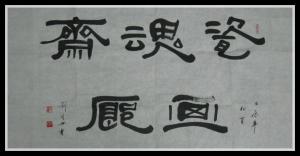 瓷魂齋
画廊